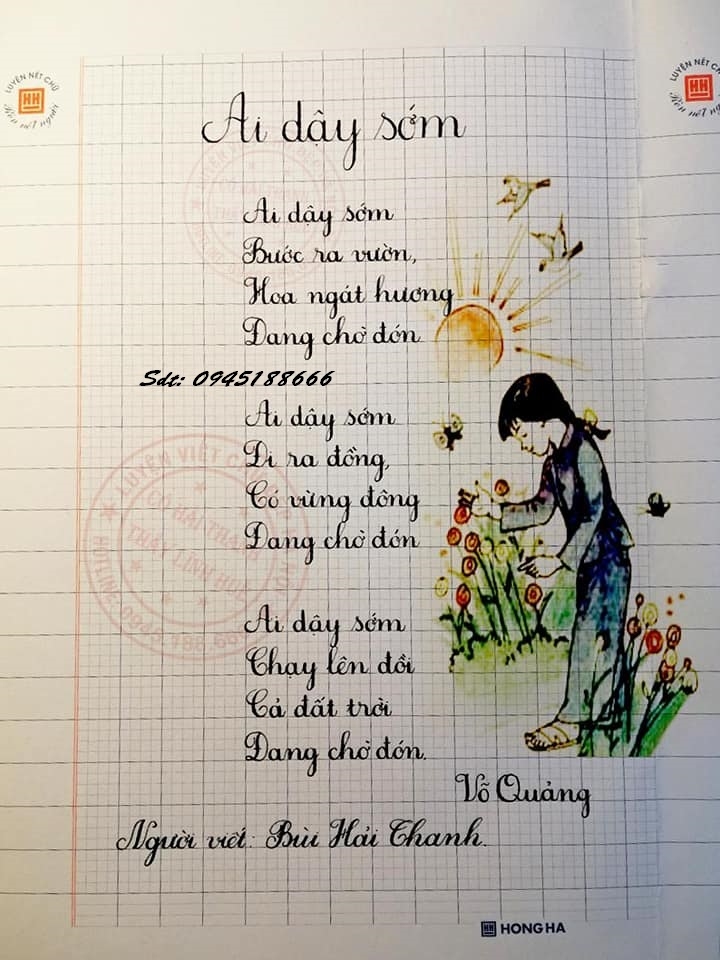 LUYỆN NÉT CHỮ
Rèn nết người
HH
LUYỆN NÉT CHỮ
Rèn nết người
HH
Ai dậy sớm
Ai dậy sớm
Bước ra vườn,
Hoa ngát hương
Đang chờ đón
Sdt: 0945188666
Ai dậy sớm
Đi ra đồng,
Có vừng đông
Đang chờ đón
LUYỆN VIẾT
CÔ HẢI THANH
THẦY LINH HUỆ
HOTLINE: 0945.188.666
Ai dậy sớm
Chạy lên đồi
Cả đất trời
Đang chờ đón.
Võ Quảng
Người viết: Bùi Hải Thanh.
HH HONG HA